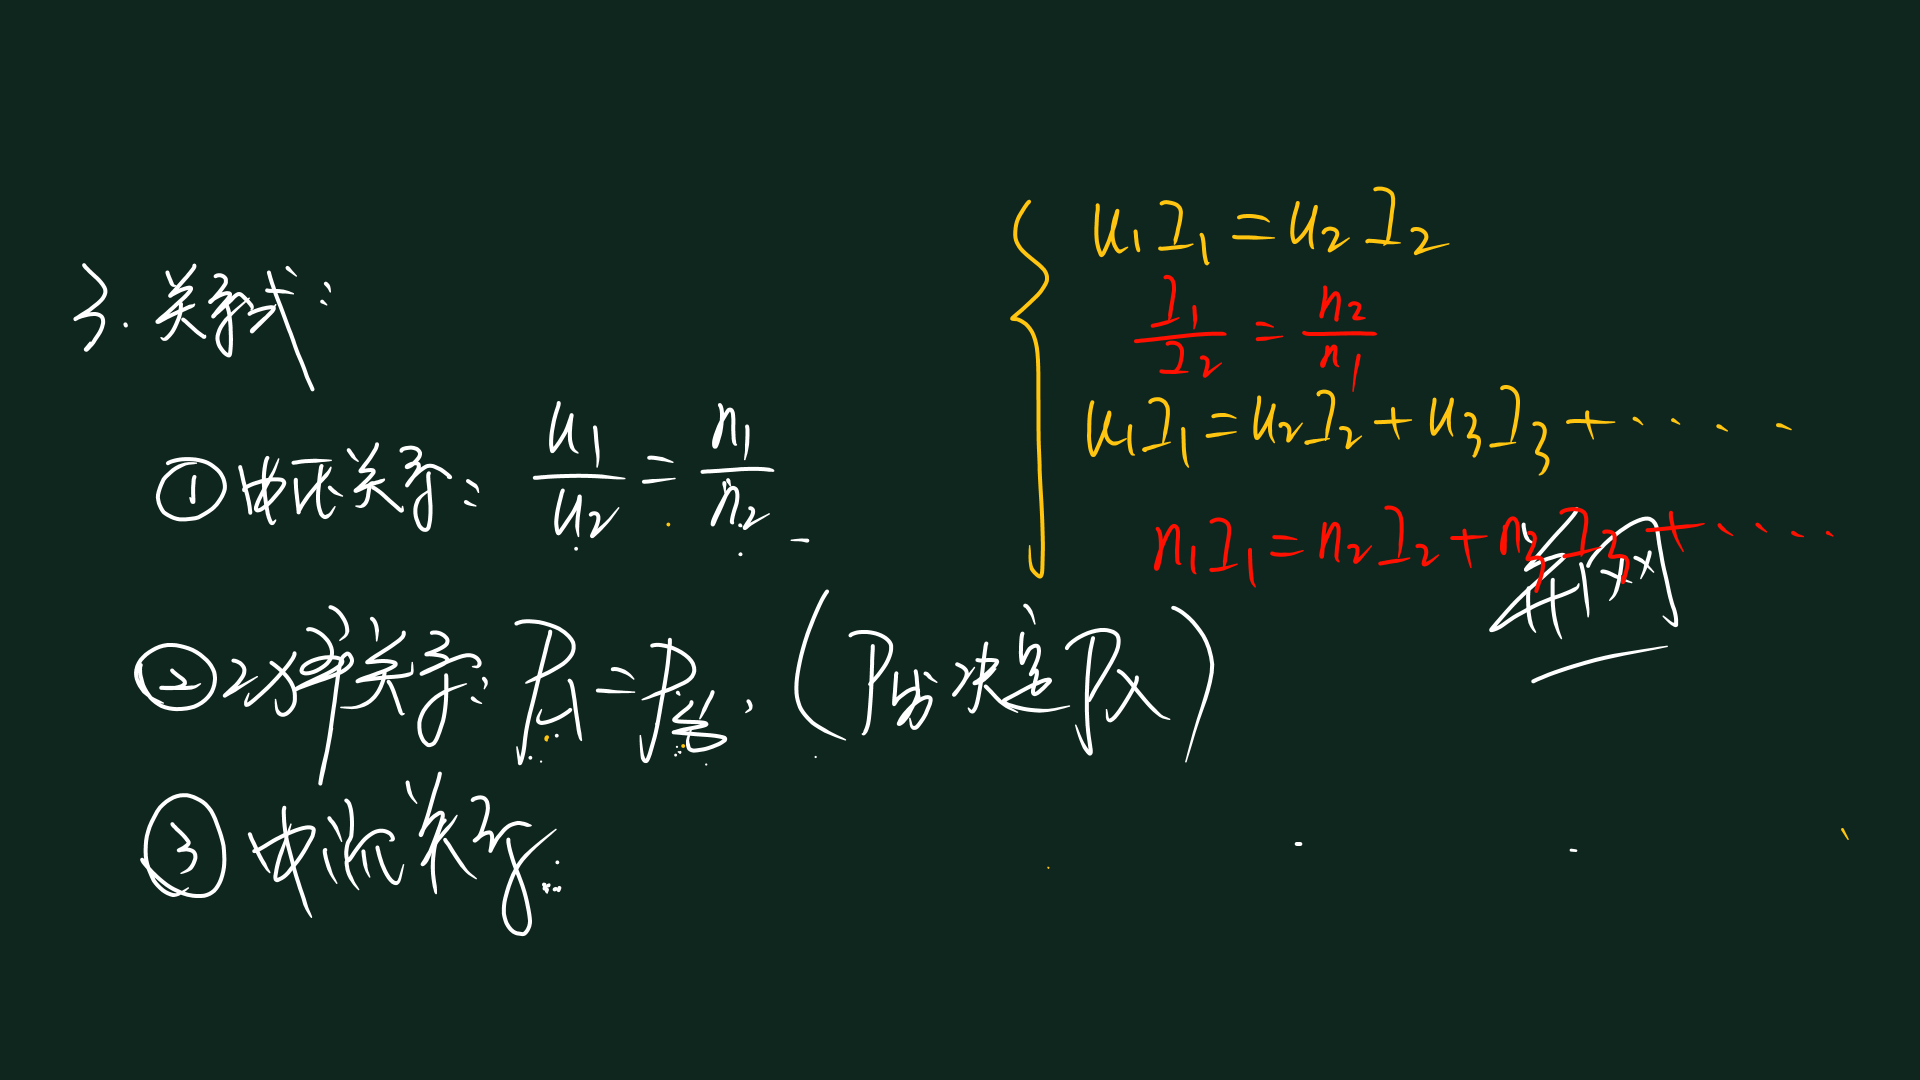 3. 关系式:
① 电压关系: u₁/u₂ = n₁/n₂
② 功率关系: P入 = P出. (P出决定P入)
③ 电流关系:
u₁I₁ = u₂I₂
I₁/I₂ = n₂/n₁
u₁I₁ = u₂I₂ + u₃I₃ + ····
n₁I₁ = n₂I₂ + n₃I₃ + ····